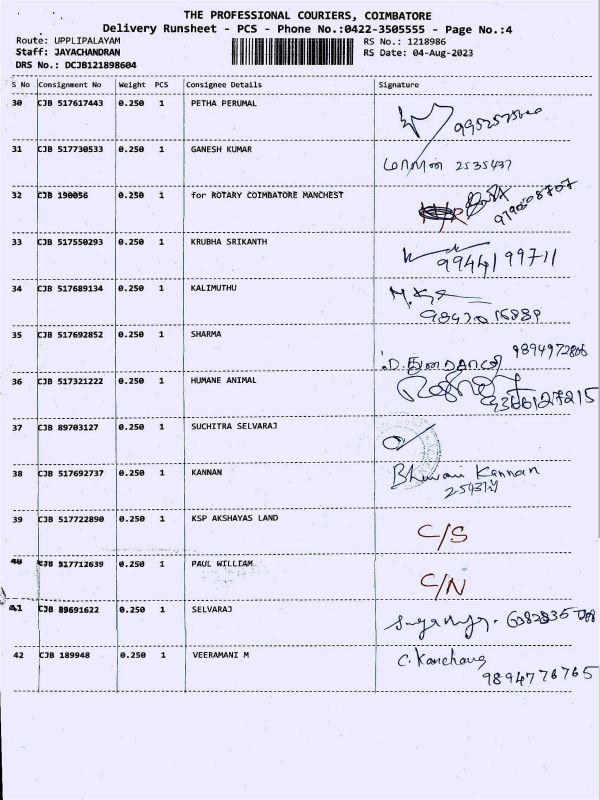 THE PROFESSIONAL COURIERS, COIMBATORE
Delivery Runsheet - PCS - Phone No.:0422-3505555 - Page No.:4
Route: UPPLIPALAYAM RS No.: 1218986
Staff: JAYACHANDRAN RS Date: 04-Aug-2023
DRS No.: DCJB121898604
S No Consignment No Weight PCS Consignee Details Signature
30 CJB 517617443 0.250 1 PETHA PERUMAL
31 CJB 517730533 0.250 1 GANESH KUMAR 2535437
32 CJB 190056 0.250 1 for ROTARY COIMBATORE MANCHEST
33 CJB 517550293 0.250 1 KRUBHA SRIKANTH 9944199711
34 CJB 517689134 0.250 1 KALIMUTHU
35 CJB 517692852 0.250 1 SHARMA 9894972866
36 CJB 517321222 0.250 1 HUMANE ANIMAL 9366127215
37 CJB 89703127 0.250 1 SUCHITRA SELVARAJ
38 CJB 517692737 0.250 1 KANNAN Bhuvani Kannan
39 CJB 517722890 0.250 1 KSP AKSHAYAS LAND C/S
40 CJB 517712639 0.250 1 PAUL WILLIAM C/N
41 CJB 89691622 0.250 1 SELVARAJ
42 CJB 189948 0.250 1 VEERAMANI M C. Kanchana
9894776765